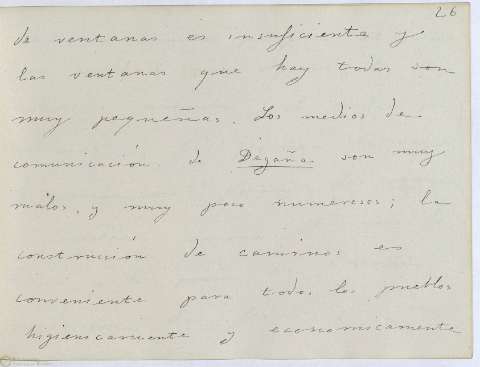 26
de ventanas es insuficiente y
las ventanas que hay todas son
muy pequeñas. Los medios de
comunicación de Degaña son muy
malos, y muy poco numerosos; la
construcción de caminos es
conveniente para todos los pueblos
higienicamente y economicamente